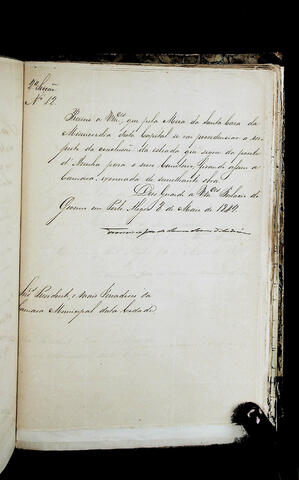 2ª Secção
Nº 12.
Previno a Vmces, que pela Mesa da Santa Casa da
Misericordia desta Capital se vai providenciar a res-
peito da conclusão da estrada que segue da ponte
d' Azenha para o seu Cemiterio, ficando assim a
Camara, exonerada de semelhante obra.
Deos Guarde a Vmces Palacio do
Governo em Porto Alegre 8 de Maio de
Snr. Presidente, e mais Vereadores da
Camara Municipal desta Cidade.